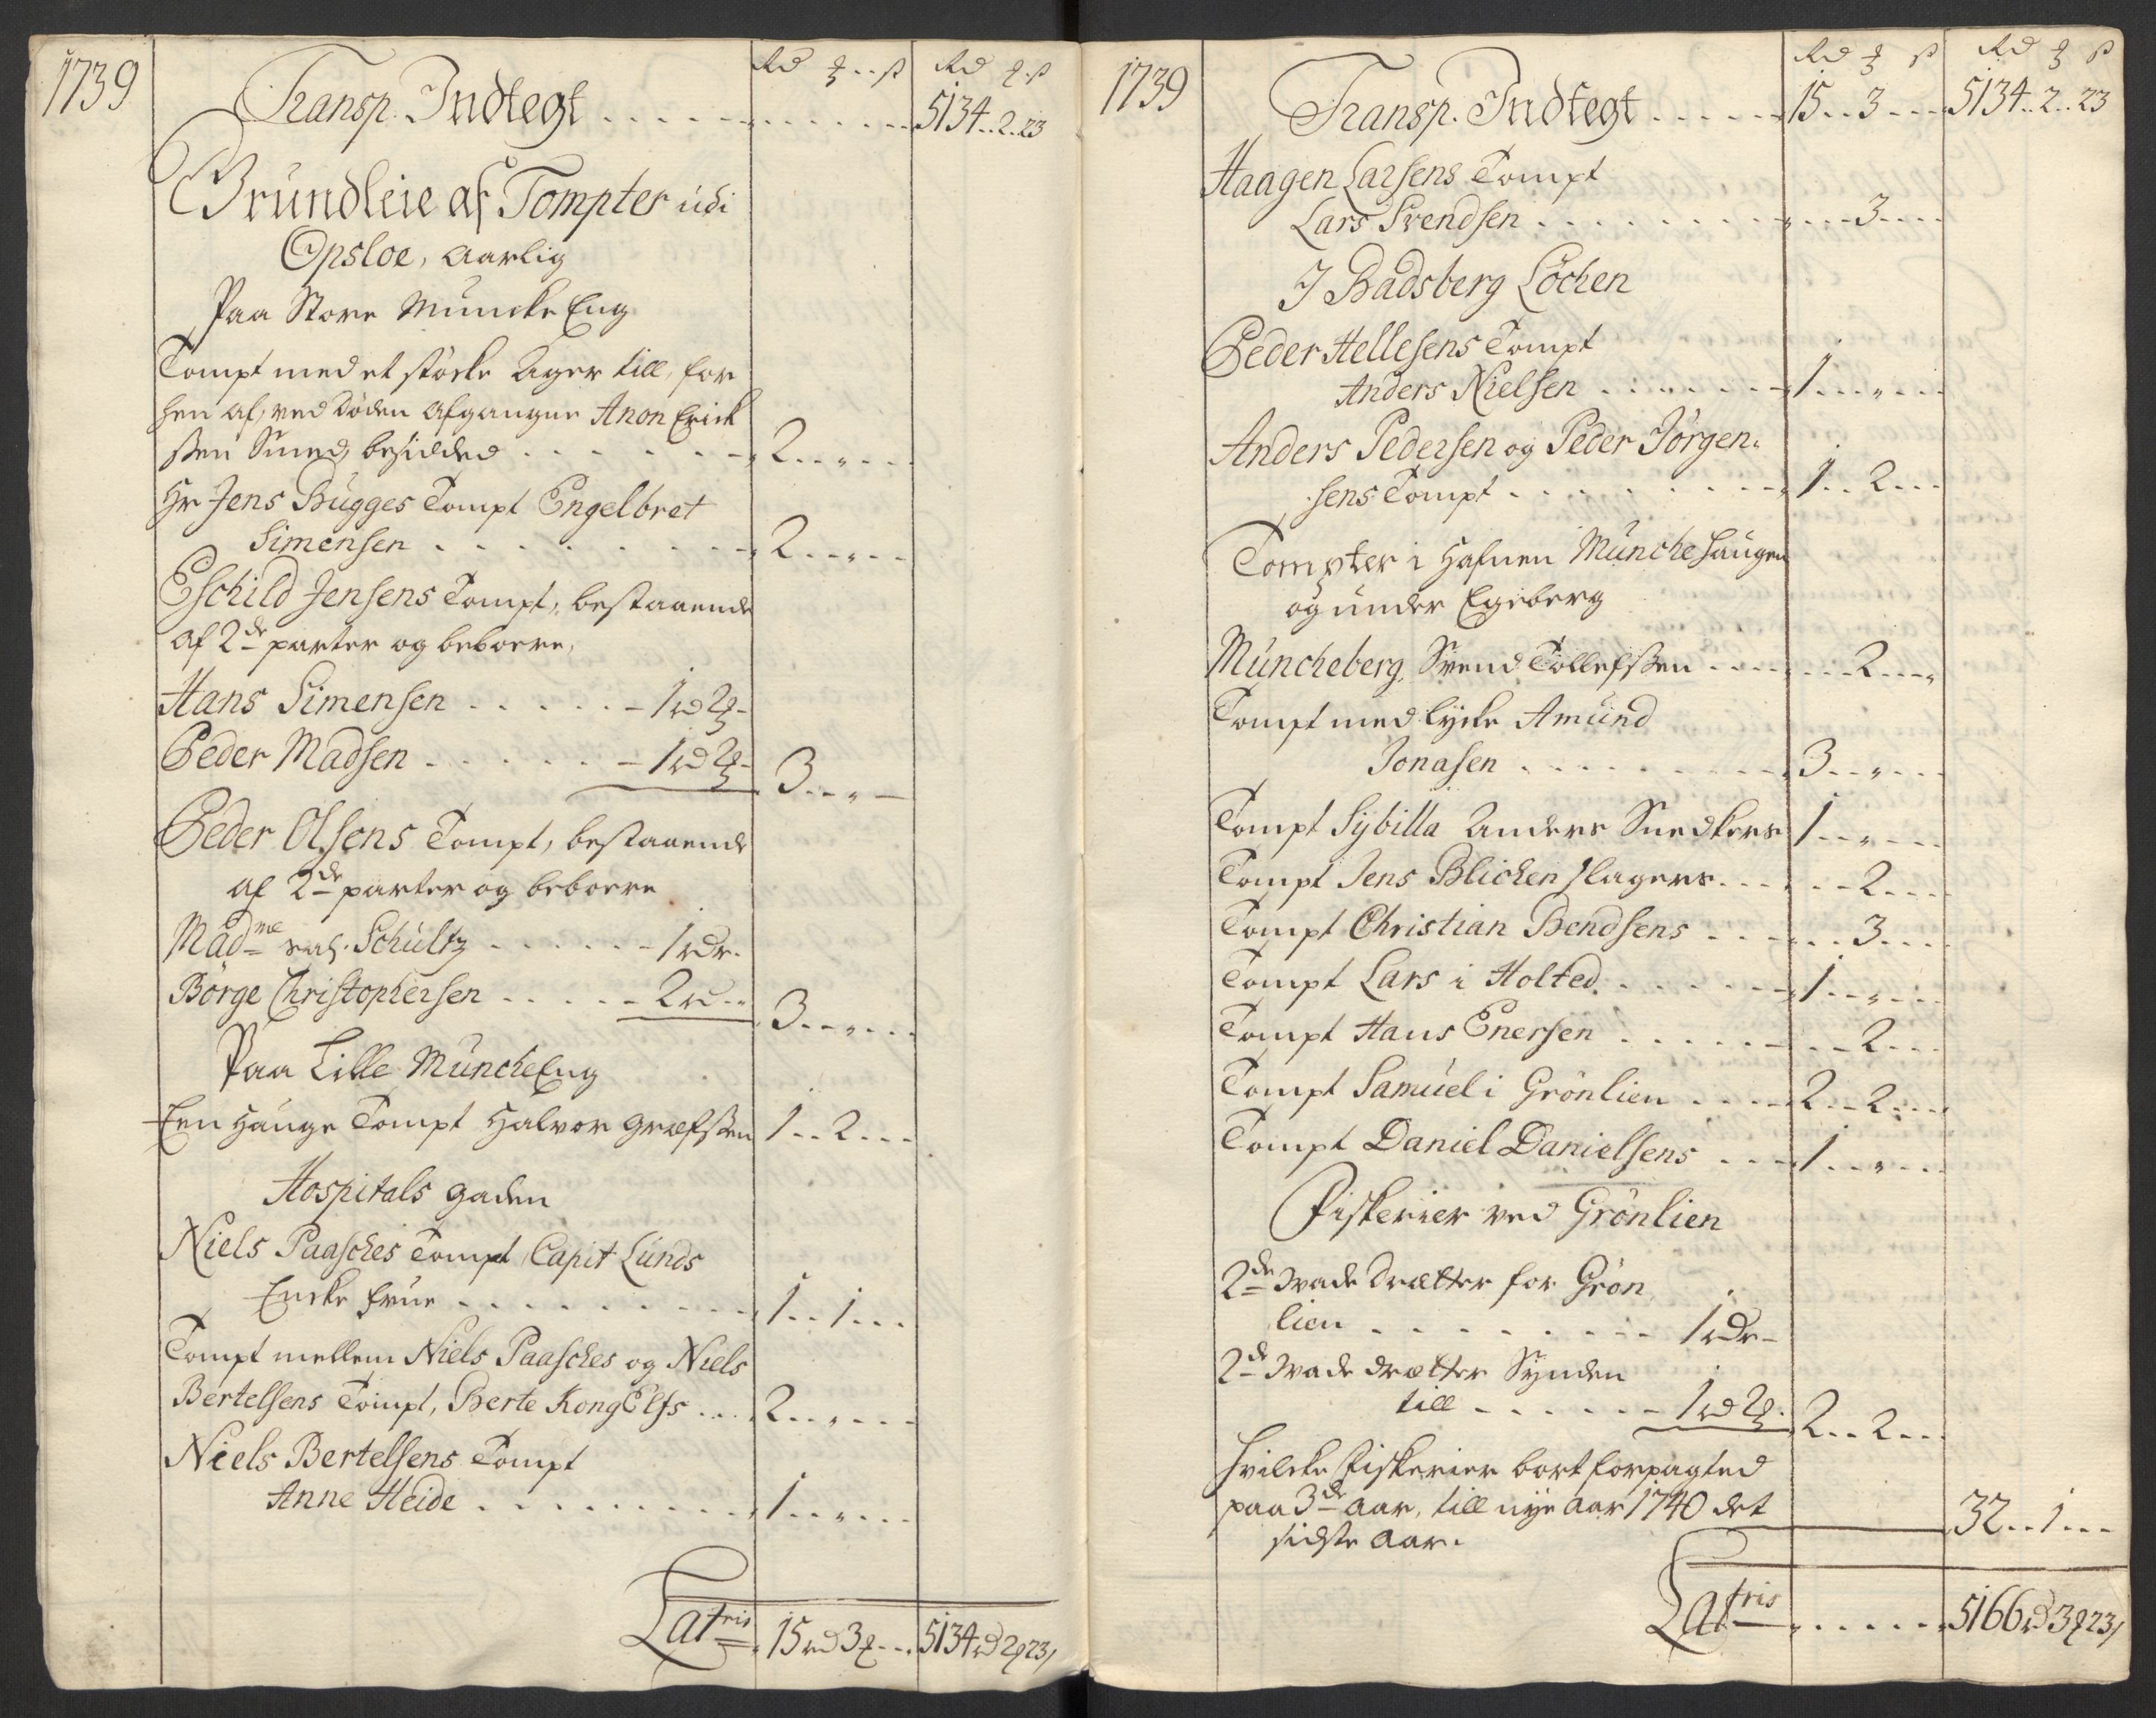 1739
Rd ... ß Rd ß
Transp. Indtegt . . . . . 5134..2..23
Grundleie af Tompter udi
Opsloe, Aarlig
Paa Store Muncke Eng
Tompt med et støcke Ager till, for
hen af, ved Døden Afgangne Anon Erick
ßen Smed, besidded . . . . . 2..„..
Hr Jens Bugges Tompt Engelbret
Simensen . . . . . 2..„..
Eschild Jensens Tompt, bestaaende
af 2de parter og beboere,
Hans Simensen . . . . . 1 rd 2
Peder Madsen . . . . . 1 rd 2 3..„..
Peder Olsens Tompt, bestaaende
af 2de parter og beboere
Madme sal. Schultz . . . . . 1 rdr.
Börge Christophersen . . . . . 2 rd .. 3..„..
Paa Lille MunckeEng
Een Hauge Tompt Halvor Græfßen 1..2...
Hospitals gaden
Niels Paasches Tompt Capit Lunds
Encke frue . . . . . 1..1...
Tompt mellem Niels Paasches og Niels
Bertelsens Tompt, Berte KongElfs ... 2..„..
Niels Bertelsens Tompt
Anne Heide . . . . . 1..„..
Latris 15 rd 3 ... 5134 rd 2 23
1739
Rd ß Rd ß
Transp. Indtegt . . . . . 15..3... 5134..2..23
Haagen Larsens Tompt
Lars Svendsen . . . . . 3...
I Badsberg Löchen
Peder Hellesens Tompt
Anders Nielsen . . . . . 1..„..
Anders Pedersen og Peder Jörgen
sens Tompt . . . . . 1..2...
Tompter i Hafnen Munche Haugen
og under Egeberg
Muncheberg, Svend Tollefßen . . . . 2...
Tompt med lycke Amund
Jonasen . . . . . 3..„..
Tompt Sybilla Anders Snedkers 1..„..
Tompt Jens Blicken slagers . . . 2...
Tompt Christian Bendsens . . . 3...
Tompt Lars i Holted . . . . . 1..„..
Tompt Hans Enersen . . . . . 2...
Tompt Samuel i Grönlien . . . . 2..2...
Tompt Daniel Danielsens . . . 1..„..
Fiskerier ved Grönlien
2de Wade Drætter for Grön
lien . . . . . 1 rdr
2de Wade drætter Synden
till . . . . . 1 rd 2 2..2...
hvilcke Fiskerier bort forpagted
paa 3de Aar, till nye Aar 1740 det
sidste Aar. 32..1...
Latris . . . . . 5166 rd 3 23